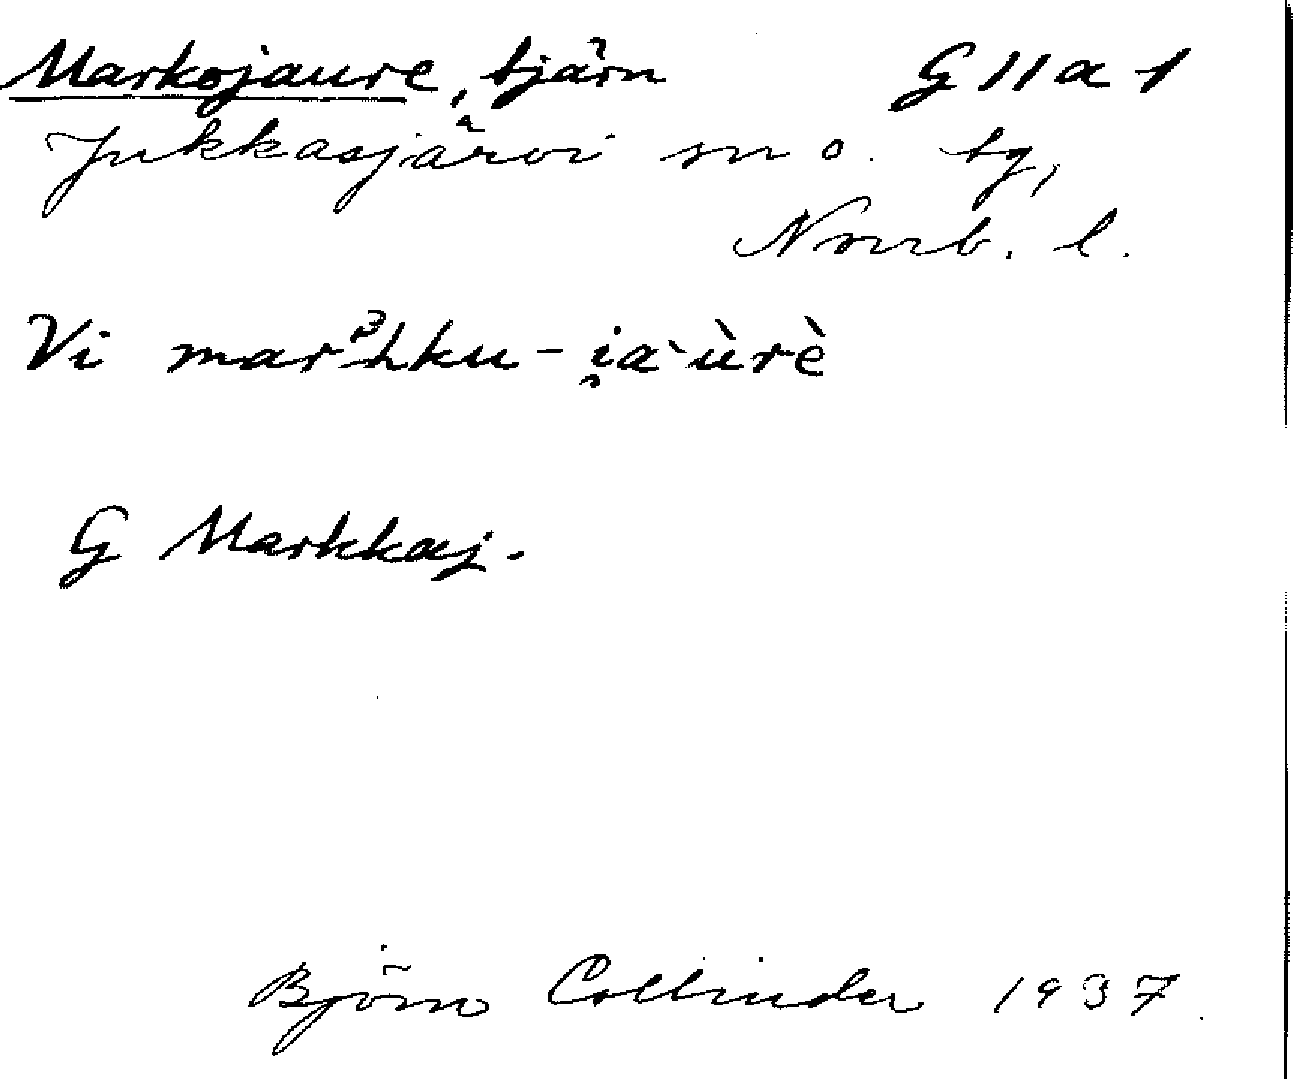 Markojaure, tjärn G 11 a 1
Jukkasjärvi sn o. tg,
Norrb. l.
Vi marᵊhku-i̯a`ùrè
G Markkaj.
Björn Collinder 1937